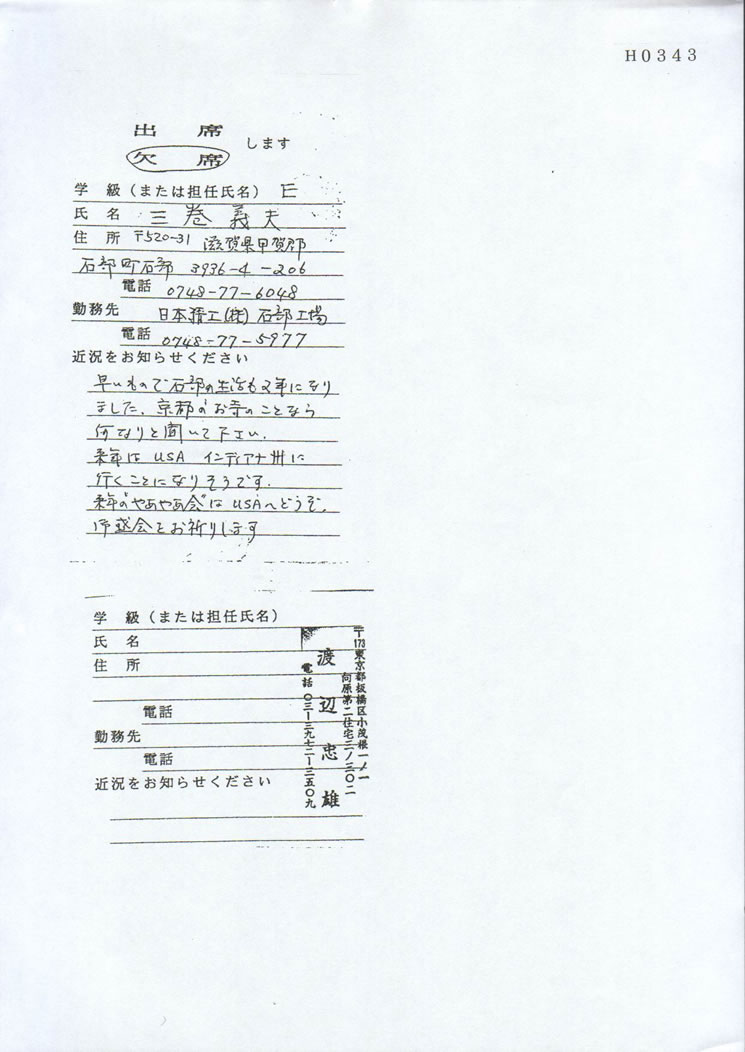 H0343
出席
欠席
します
学級（または担任氏名） E
氏名 三巻義夫
住所 〒520-31 滋賀県甲賀郡
石部町石部 3936-4-206
電話 0748-77-6048
勤務先 日本精工(株)石部工場
電話 0748-77-5977
近況をお知らせください
早いもので石部の生活も2年になり
ました。京都のお寺のことなら
何なりと聞いて下さい。
来年は USA インディアナ州に
行くことになりそうです。
来年の"やあやあ会"は USAへどうぞ。
御盛会をお祈りします
学級（または担任氏名）
氏名
住所
電話
勤務先
電話
近況をお知らせください
〒173 東京都板橋区小茂根一ノ一
向原第二住宅二ノ三〇二
渡辺忠雄
電話〇三ー三九七二ー三五〇九